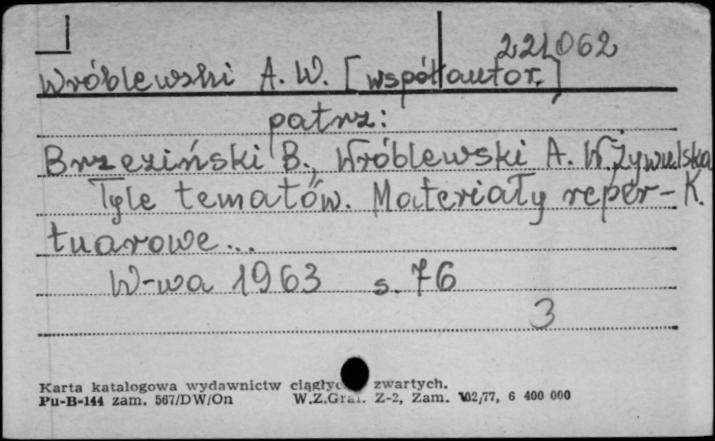 221062
Wróblewski A. W. [współautor.]
patrz:
Brzeziński B., Wróblewski A. W. Żywulska K.
Tyle tematów. Materiały reper-
tuarowe...
W-wa 1963 s. 76
3
Karta katalogowa wydawnictw ciągłyc zwartych.
Pu-B-144 zam. 567/DW/On W.Z.Graf. Z-2, Zam. 102/77, 6 400 000